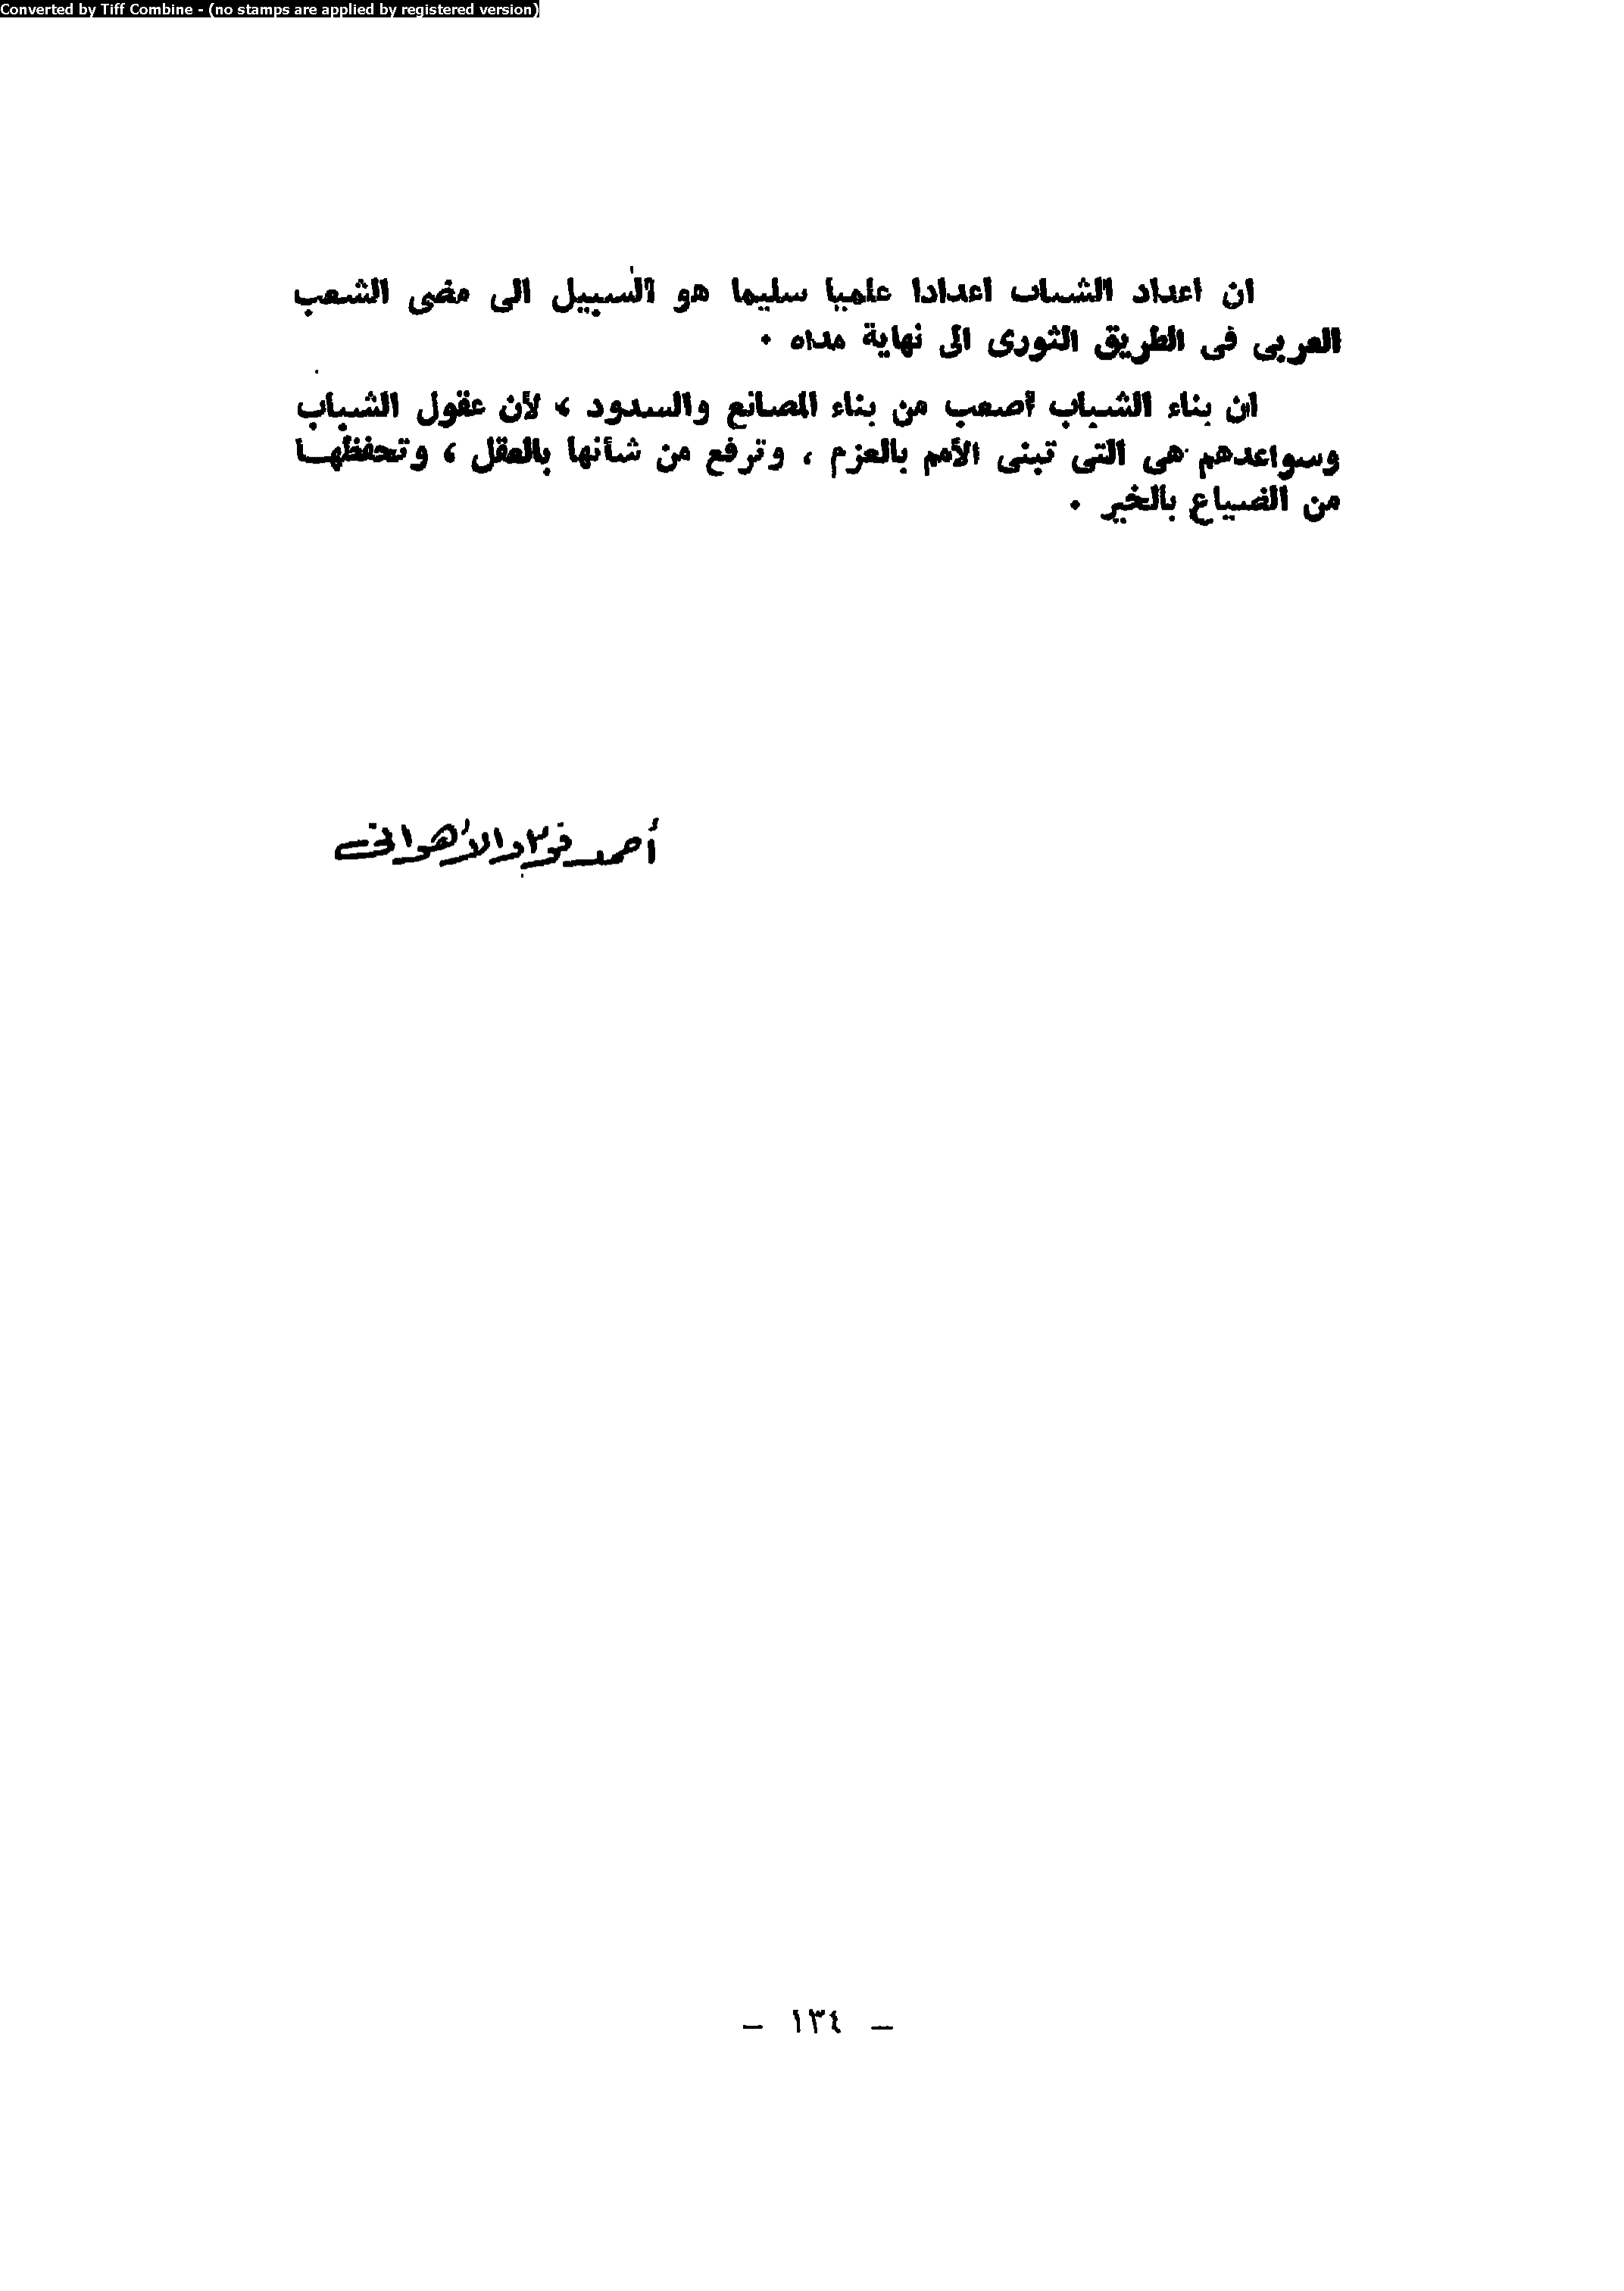 Converted by Tiff Combine - (no stamps are applied by registered version)
ان اعداد الشباب اعدادا علميا سليما هو السبيل الى مضى الشعب
العربى فى الطريق الثورى الى نهاية مداه .
ان بناء الشباب أصعب من بناء المصانع والسدود ، لأن عقول الشباب
وسواعدهم هى التى تبنى الأمم بالعزم ، وترفع من شأنها بالعقل ، وتحفظها
من الضياع بالخير .
أحمد فؤاد الأهوانى
— ١٣٤ —